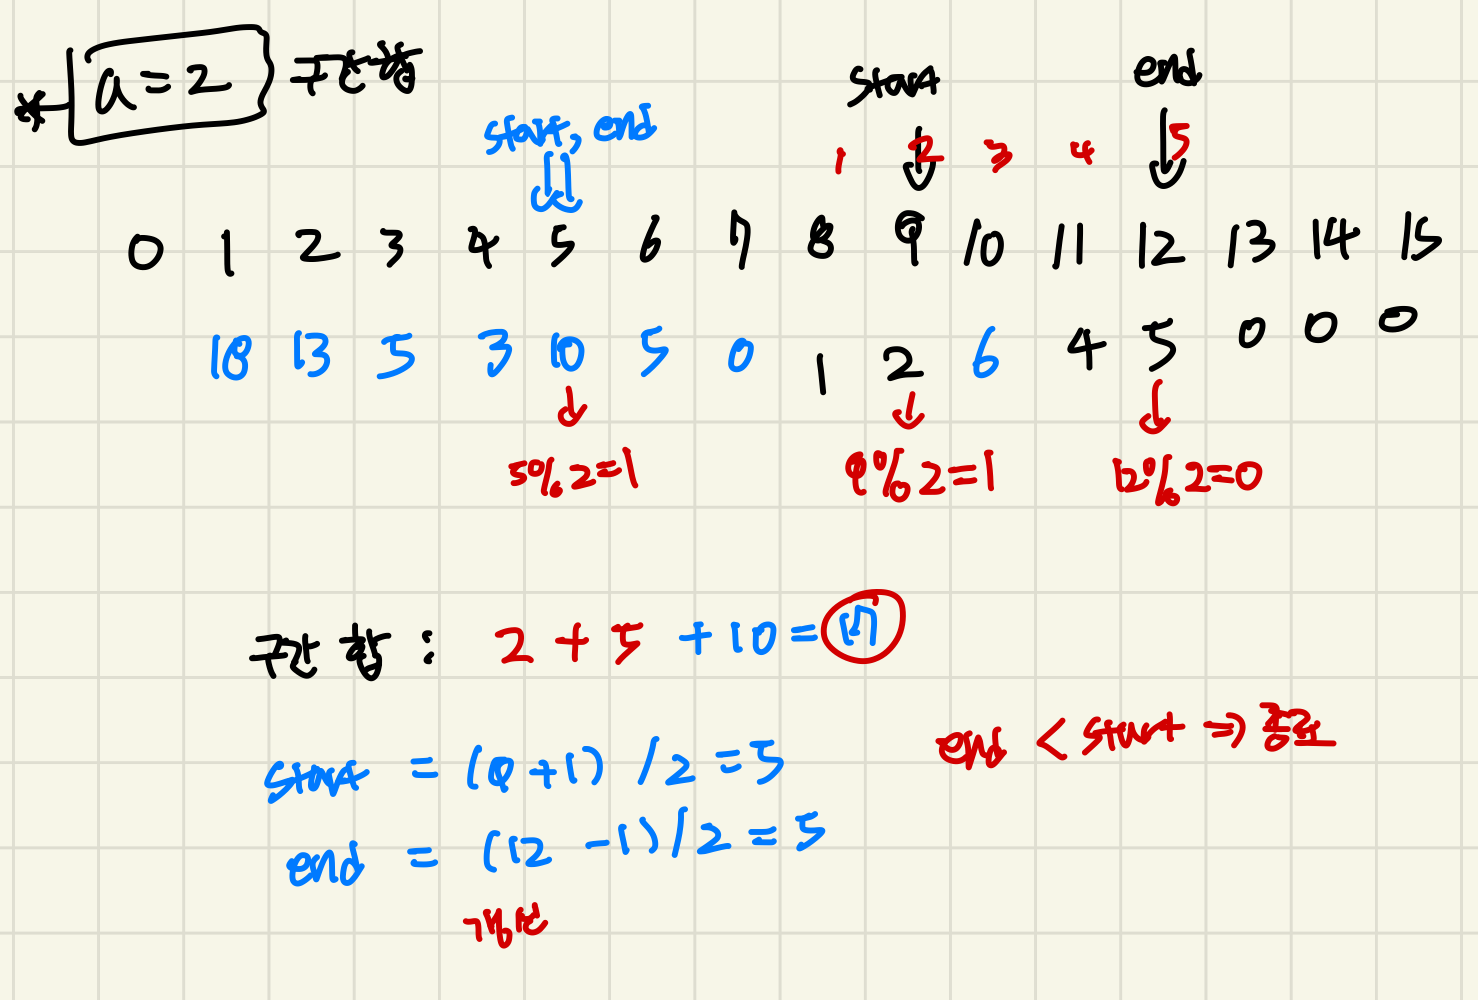 * a = 2 구간합
start end
start, end
1 2 3 4 5
0 1 2 3 4 5 6 7 8 9 10 11 12 13 14 15
18 13 5 3 10 5 0 1 2 6 4 5 0 0 0
5%2=1 9%2=1 12%2=0
구간 합 : 2 + 5 + 10 = 17
end < start => 종료
start = (9+1) /2 = 5
end = (12 -1)/2 = 5